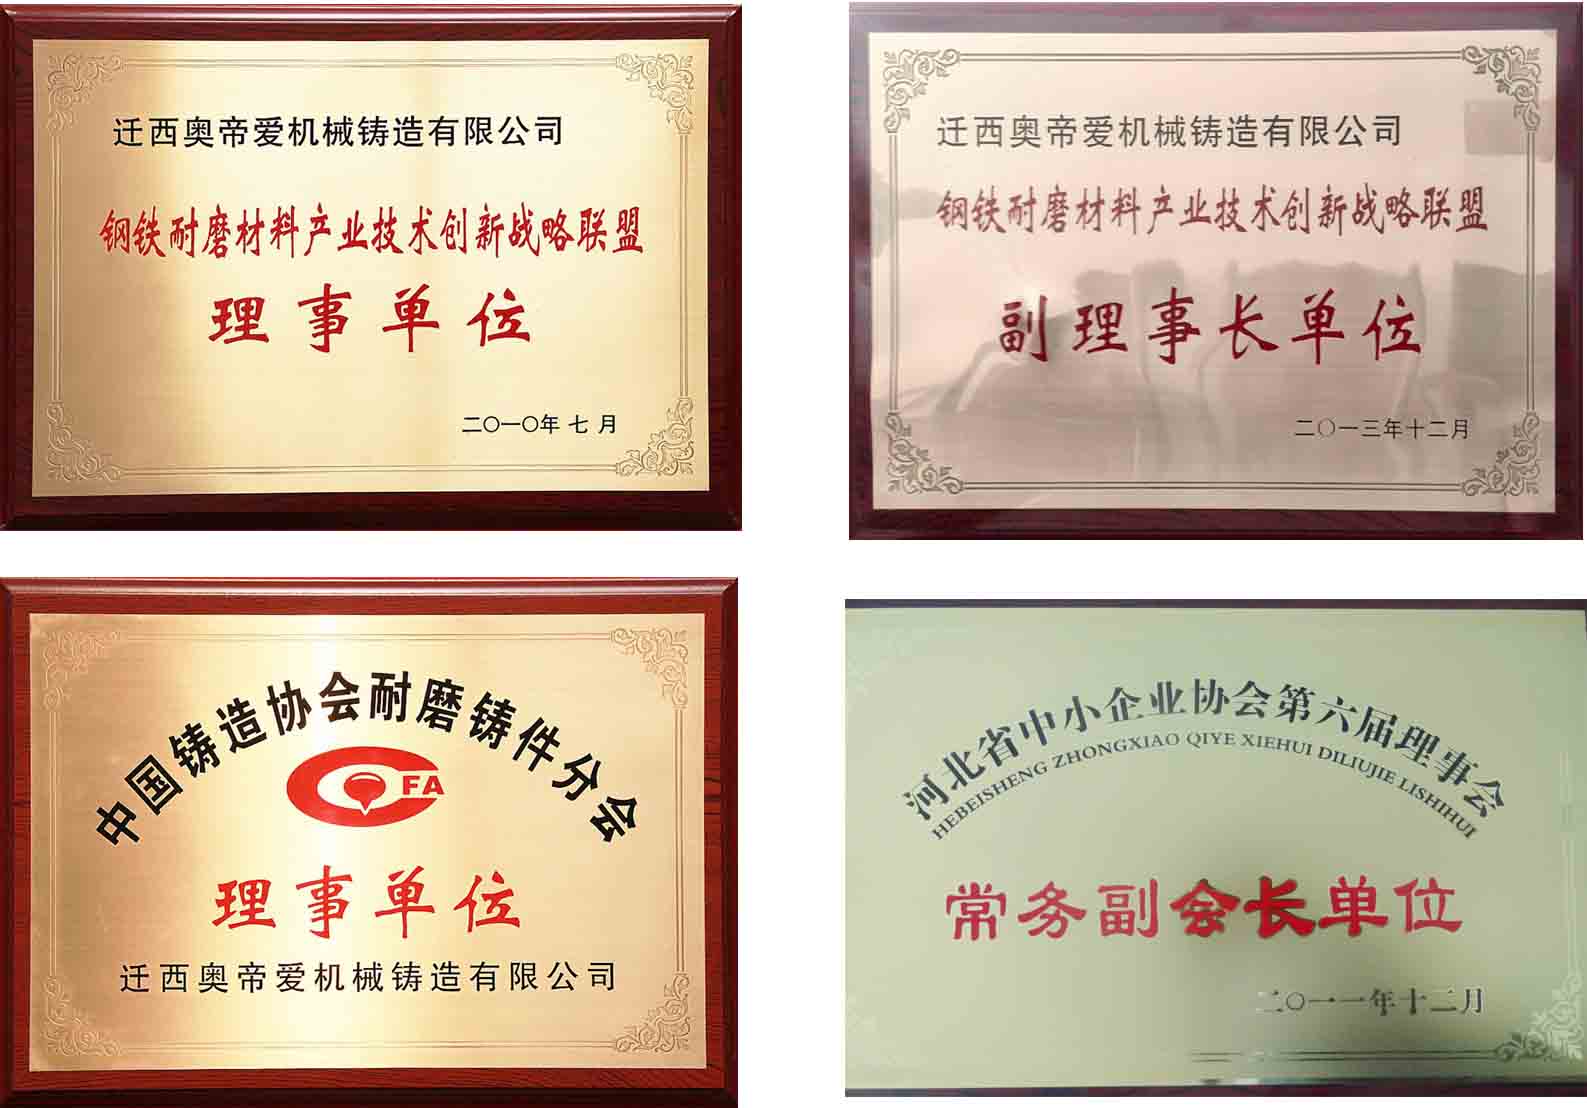 迁西奥帝爱机械铸造有限公司
钢铁耐磨材料产业技术创新战略联盟
理事单位
二〇一〇年七月
迁西奥帝爱机械铸造有限公司
钢铁耐磨材料产业技术创新战略联盟
副理事长单位
二〇一三年十二月
中国铸造协会耐磨铸件分会
FA
理事单位
迁西奥帝爱机械铸造有限公司
河北省中小企业协会第六届理事会
HEBEISHENG ZHONGXIAO QIYE XIEHUI DILIUJIE LISHIHUI
常务副会长单位
二〇一一年十二月